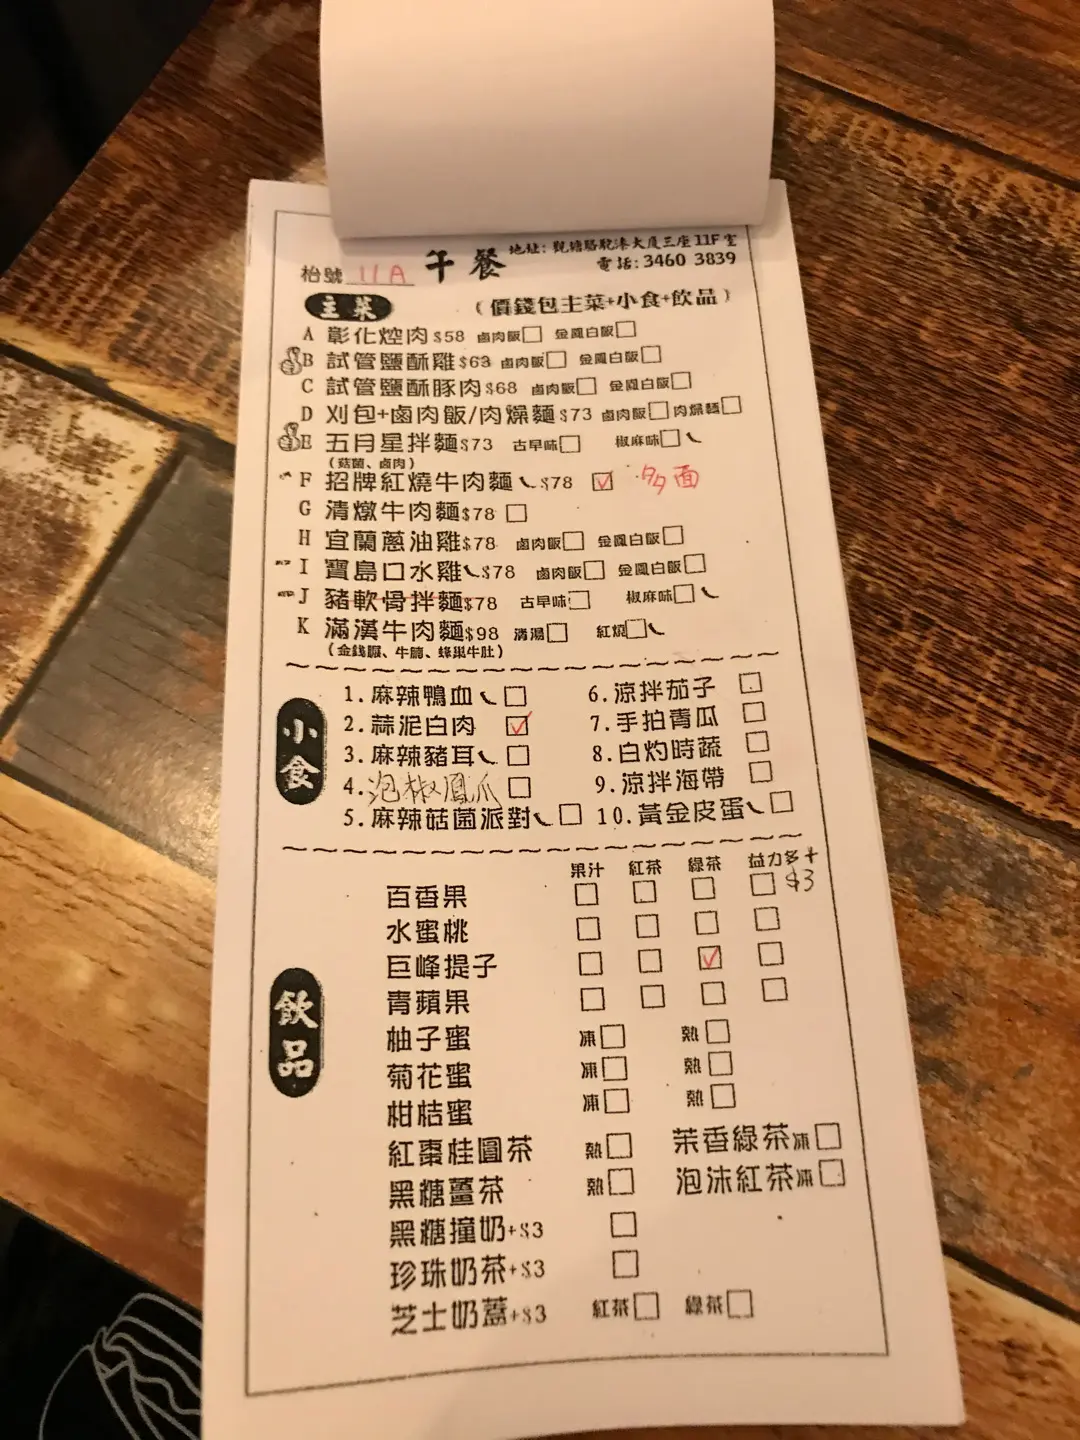 午餐 地址: 觀塘駱駝漆大廈三座11F室
枱號 11A 電話: 3460 3839
主菜 (價錢包主菜+小食+飲品)
A 彰化焢肉$58 鹵肉飯□ 金鳳白飯□
B 試管鹽酥雞$63 鹵肉飯□ 金鳳白飯□
C 試管鹽酥豚肉$68 鹵肉飯□ 金鳳白飯□
D 刈包+鹵肉飯/肉燥麵$73 鹵肉飯□ 肉燥麵□
E 五月星拌麵$73 古早味□ 椒麻味□
(菇菌、鹵肉)
F 招牌紅燒牛肉麵$78 ☑ 多面
G 清燉牛肉麵$78 □
H 宜蘭蔥油雞$78 鹵肉飯□ 金鳳白飯□
I 寶島口水雞$78 鹵肉飯□ 金鳳白飯□
J 豬軟骨拌麵$78 古早味□ 椒麻味□
K 滿漢牛肉麵$98 清湯□ 紅燒□
(金錢𦟌、牛腩、蜂巢牛肚)
小食
1.麻辣鴨血□ 6.涼拌茄子□
2.蒜泥白肉☑ 7.手拍青瓜□
3.麻辣豬耳□ 8.白灼時蔬□
4.泡椒鳳爪□ 9.涼拌海帶□
5.麻辣菇菌派對□ 10.黃金皮蛋□
飲品
果汁 紅茶 綠茶 益力多+$3
百香果 □ □ □ □
水蜜桃 □ □ □ □
巨峰提子 □ □ ☑ □
青蘋果 □ □ □ □
柚子蜜 凍□ 熱□
菊花蜜 凍□ 熱□
柑桔蜜 凍□ 熱□
紅棗桂圓茶 熱□ 茉香綠茶凍□
黑糖薑茶 熱□ 泡沫紅茶凍□
黑糖撞奶+$3 □
珍珠奶茶+$3 □
芝士奶蓋+$3 紅茶□ 綠茶□